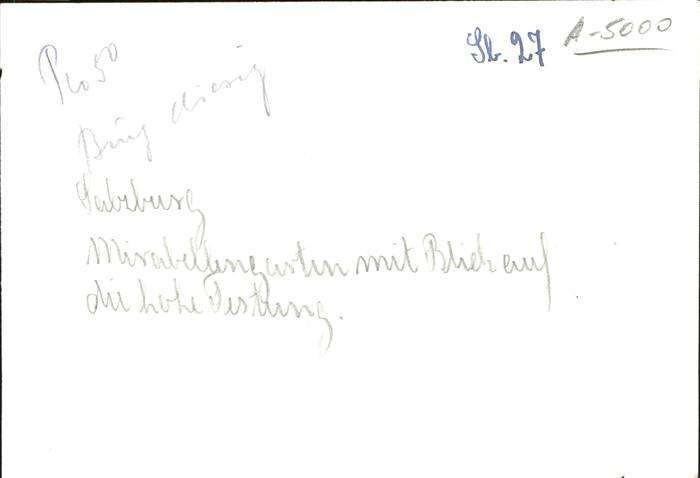 Sb. 27 A-5000
Pro 50
Burg diesig
Salzburg
Mirabellengarten mit Blick auf
die hohe Festung.